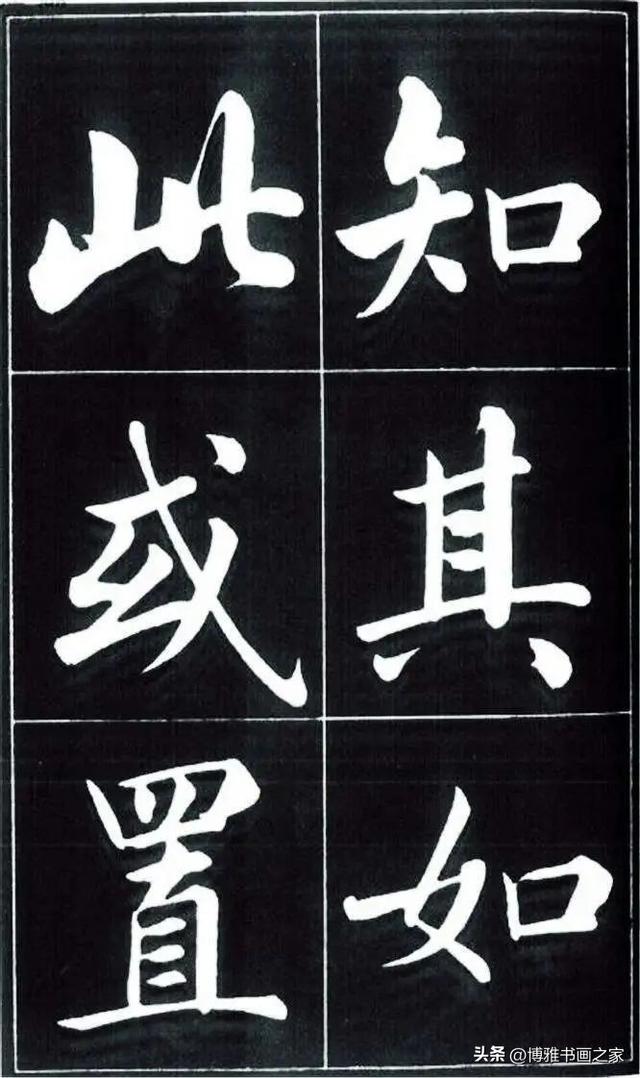 知其如
此或置
头条 @博雅书画之家